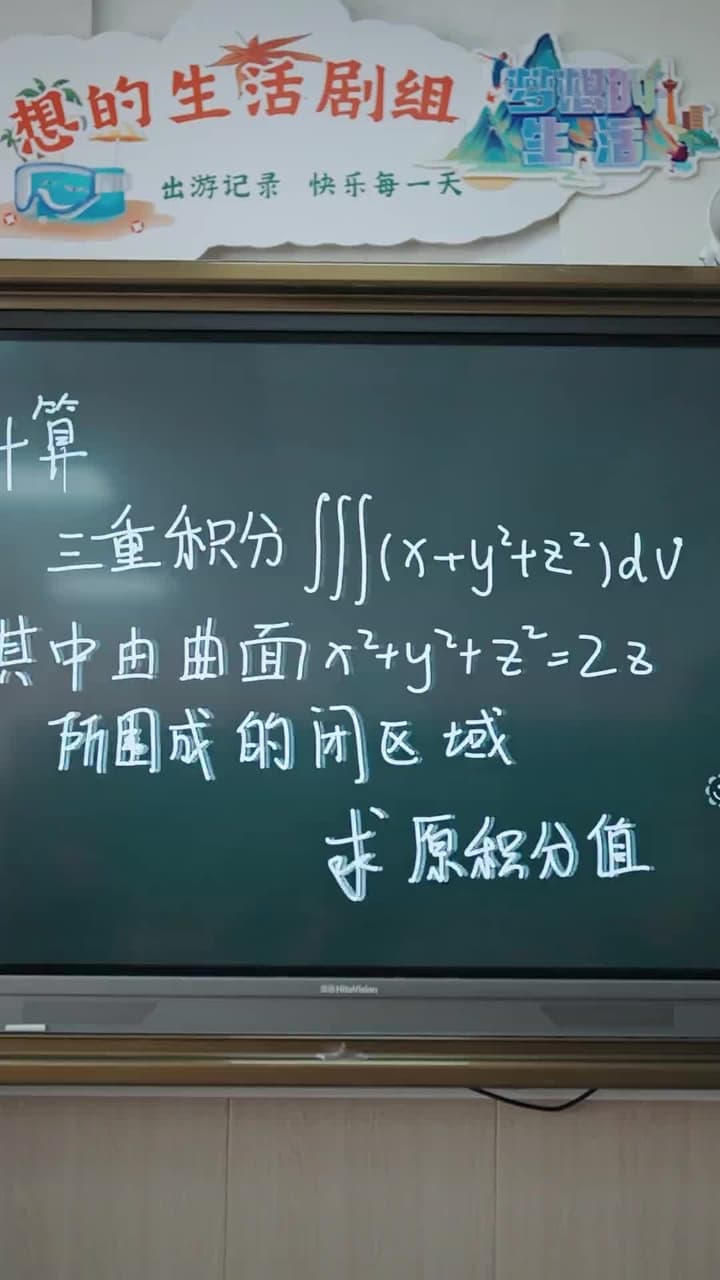 想的生活剧组
梦想的
生活
出游记录 快乐每一天
计算
三重积分∭(x+y²+z²)dv
其中由曲面x²+y²+z²=2z
所围成的闭区域
求原积分值
HiteVision